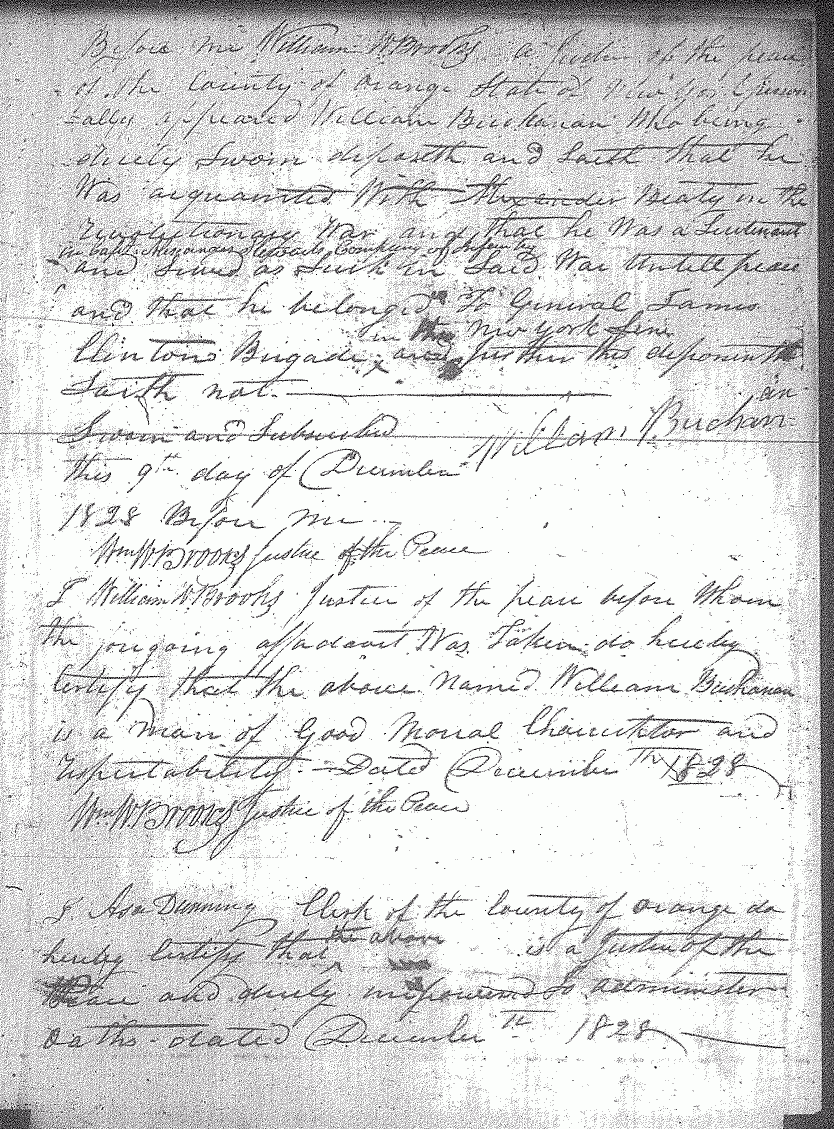 Before me William W Brooks a Justice of the peace
of the County of Orange State of New York person
ally appeared William Buchanan Who being
duely Sworn deposeth and Saith that he
Was acquainted With Alexander Beaty in the
revolutionary War and that he Was a Lieutenant
in Capt. Company of Infantry
and Served as Such in Said War Untill peace
and that he belonged To General James
in the New York Line
Clintons Brigade and further this deponent
Saith not.
Sworn and Subscribed William Buchan
an
this 9th day of December
1828 Before me
Wm W. Brooks Justice of the Peace
I William W Brooks Justice of the peace before Whom
the forgoing affadavit Was Taken do hereby
Certify that the above Named William Buchanan
is a man of Good Morral Charecktor and
respectability. Dated December Th 1828
Wm W. Brooks Justice of the Peace
I Asa Dunning Clerk of the County of Orange do
hereby Certify that the above is a Justice of the
Peace and duely impowered to administer
oaths. dated December Th 1828